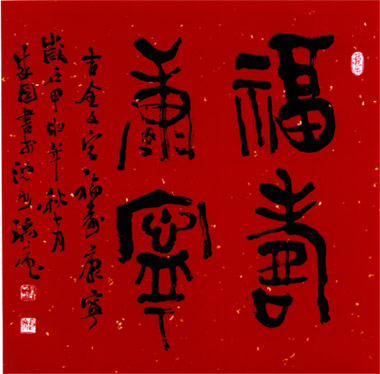 福壽
康寧
吉金文字福寿康寧
歲在甲申年秋七月
書於